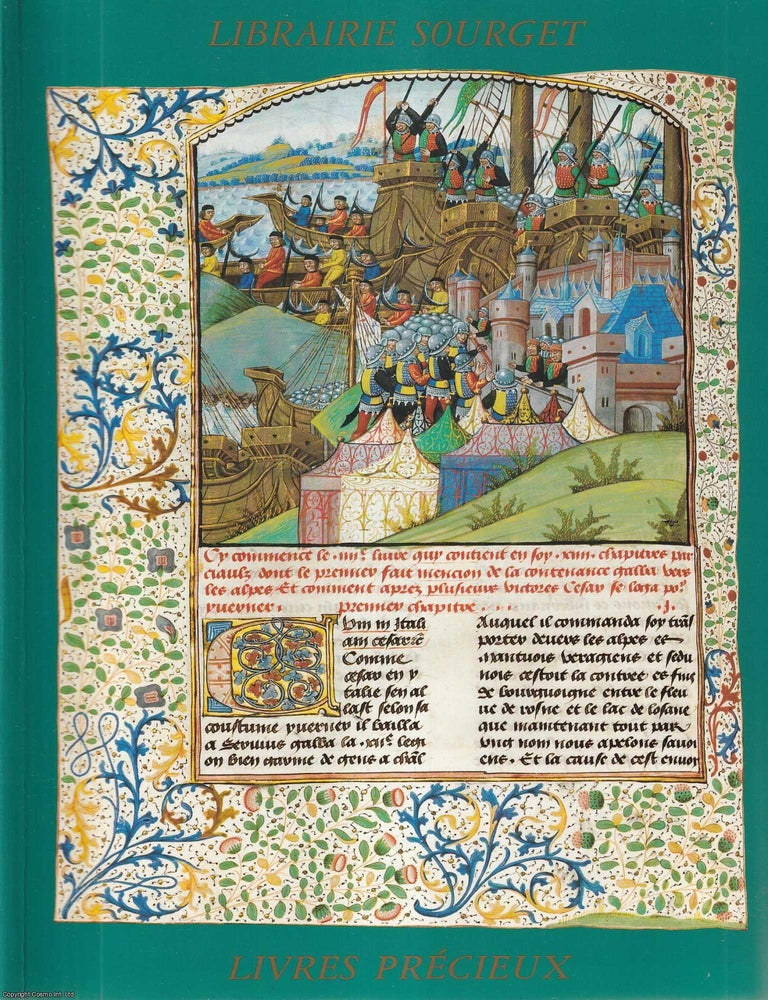 LIBRAIRIE SOURGET
Cy commence le .iiij.e livre quy contient en soy .xiiij. chapitres par
ciaulx dont le premier fait mencion de la contenance galba vers
les alpes Et comment aprez plusieurs victores Cesar se loga po.r
yverner. Premier chapitre . . . . .J.
in Itali
am cesar
Comme
cesar en y
talie sen al
last selon sa
coustume yverner il bailla
a Servius galba la .xij.e legi
on bien garnie de gens a chãl
Auquel il commanda soy trãs
porter devers les alpes es
nantuois veragiens et sedu
nois cestoit la contree es fins
de bourguoigne entre le fleu
ve de rosne et le lac de losane
que maintenant tout par
ung nom nous apelons savoi
ens. Et la cause de cest envoi
LIVRES PRÉCIEUX
Copyright Cosmo Int. Ltd